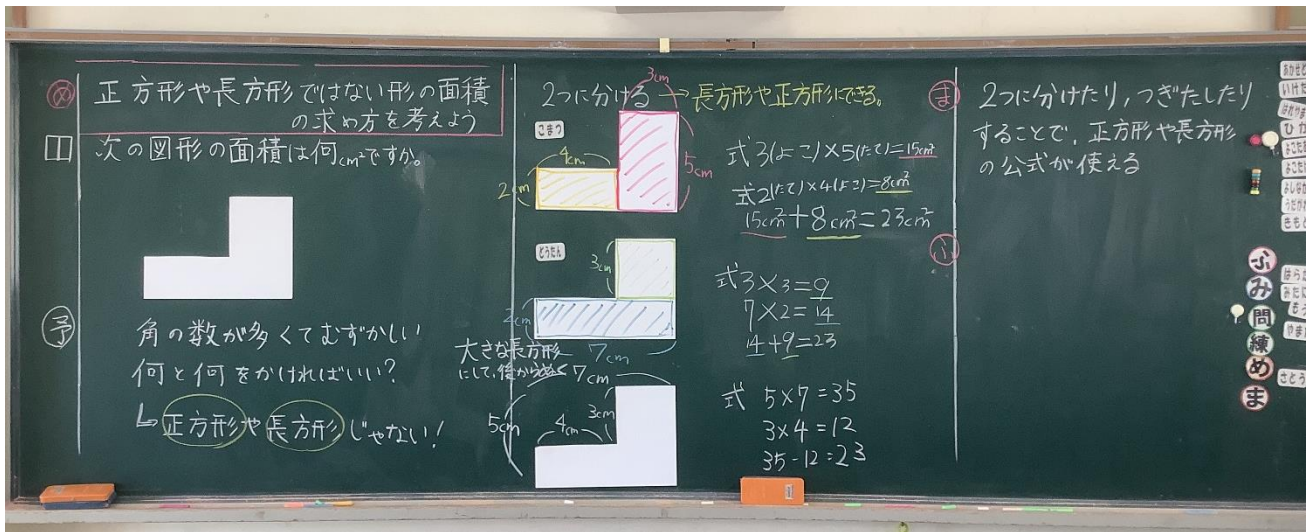 め
正方形や長方形ではない形の面積
の求め方を考えよう
1
次の図形の面積は何cm²ですか。
予
角の数が多くてむずかしい
何と何をかければいい?
↳正方形や長方形じゃない!
2つに分ける→長方形や正方形にできる。
こまつ
3cm
4cm
2cm
5cm
式3(よこ)×5(たて)=15cm²
式2(たて)×4(よこ)=8cm²
15cm²+8cm²=23cm²
どうたん
3cm
2cm
7cm
式3×3=9
7×2=14
14+9=23
大きな長方形
にして、後から
7cm
5cm
4cm
3cm
式 5×7=35
3×4=12
35-12=23
ま
2つに分けたり,つぎたしたり
することで,正方形や長方形
の公式が使える
ふ
ふ
み
問
練
め
ま
さとう